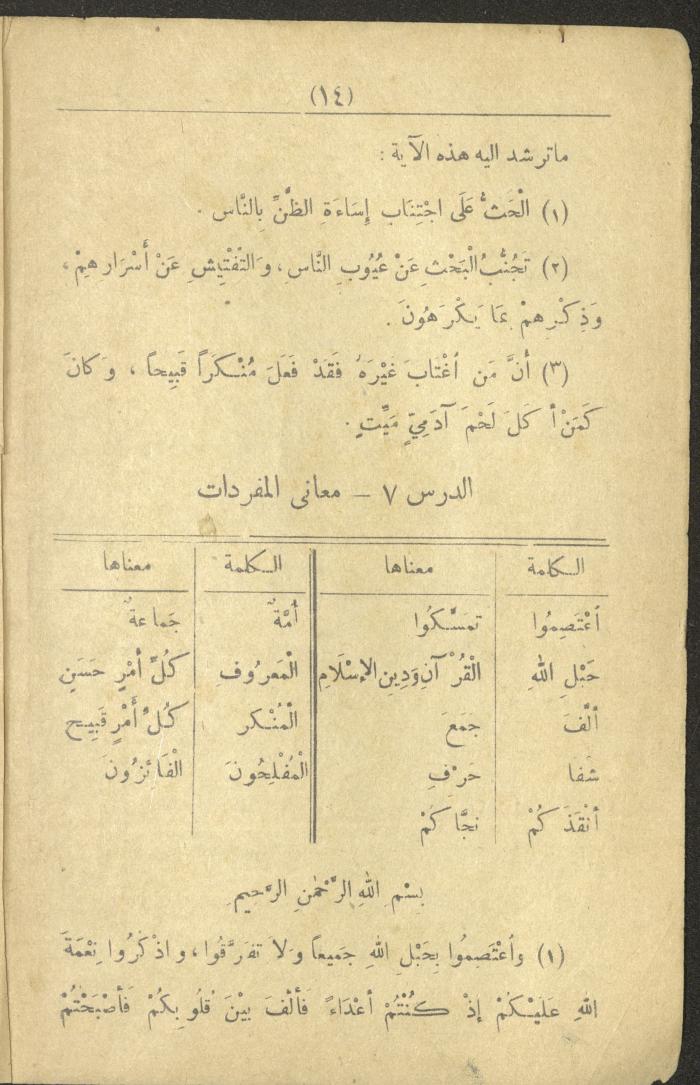 (١٤)
ماترشد اليه هذه الآية :
(١) الْحَثُّ عَلَى اجْتِنَابِ إِسَاءَةِ الظَّنِّ بِالنَّاسِ .
(٢) تَجَنُّبُ الْبَحْثِ عَنْ عُيُوبِ النَّاسِ، وَالتَّفْتِيشِ عَنْ أَسْرَارِهِمْ،
وَذِكْرِهِمْ بِمَا يَكْرَهُونَ .
(٣) أَنَّ مَنِ اغْتَابَ غَيْرَهُ فَقَدْ فَعَلَ مُنْكَرَاً قَبِيحاً ، وَكَانَ
كَمَنْ أَكَلَ لَحْمَ آدَمِيٍّ مَيِّتٍ .
الدرس ٧ – معانى المفردات
الكلمة معناها الكلمة معناها
اعْتَصِمُوا تمَسَّكُوا أُمَّةٌ جَماعةٌ
حَبْلِ اللهِ الْقُرْآنِ وَدِينِ الإِسْلَامِ الْمَعرُوفِ كُلِّ أَمْرٍ حَسَنٍ
أَلَّفَ جَمَعَ الْمُنْكَر كُلُّ أَمْرٍ قَبِيح
شَفا حَرْفِ الْمُفْلِحُونَ الْفَائِزُونَ
أَنْقَذَكُمْ نجَّاكُمْ
بِسْمِ اللهِ الرَّحْمٰنِ الرَّحِيمِ
(١) وَاعْتَصِمُوا بِحَبْلِ اللهِ جَمِيعاً وَلَا تَفَرَّقُوا، وَاذْكُرُوا نِعْمَةَ
اللهِ عَلَيْكُمْ إِذْ كُنْتُمْ أَعْدَاءً فَأَلَّفَ بَيْنَ قُلُوبِكُمْ فَأَصْبَحْتُمْ